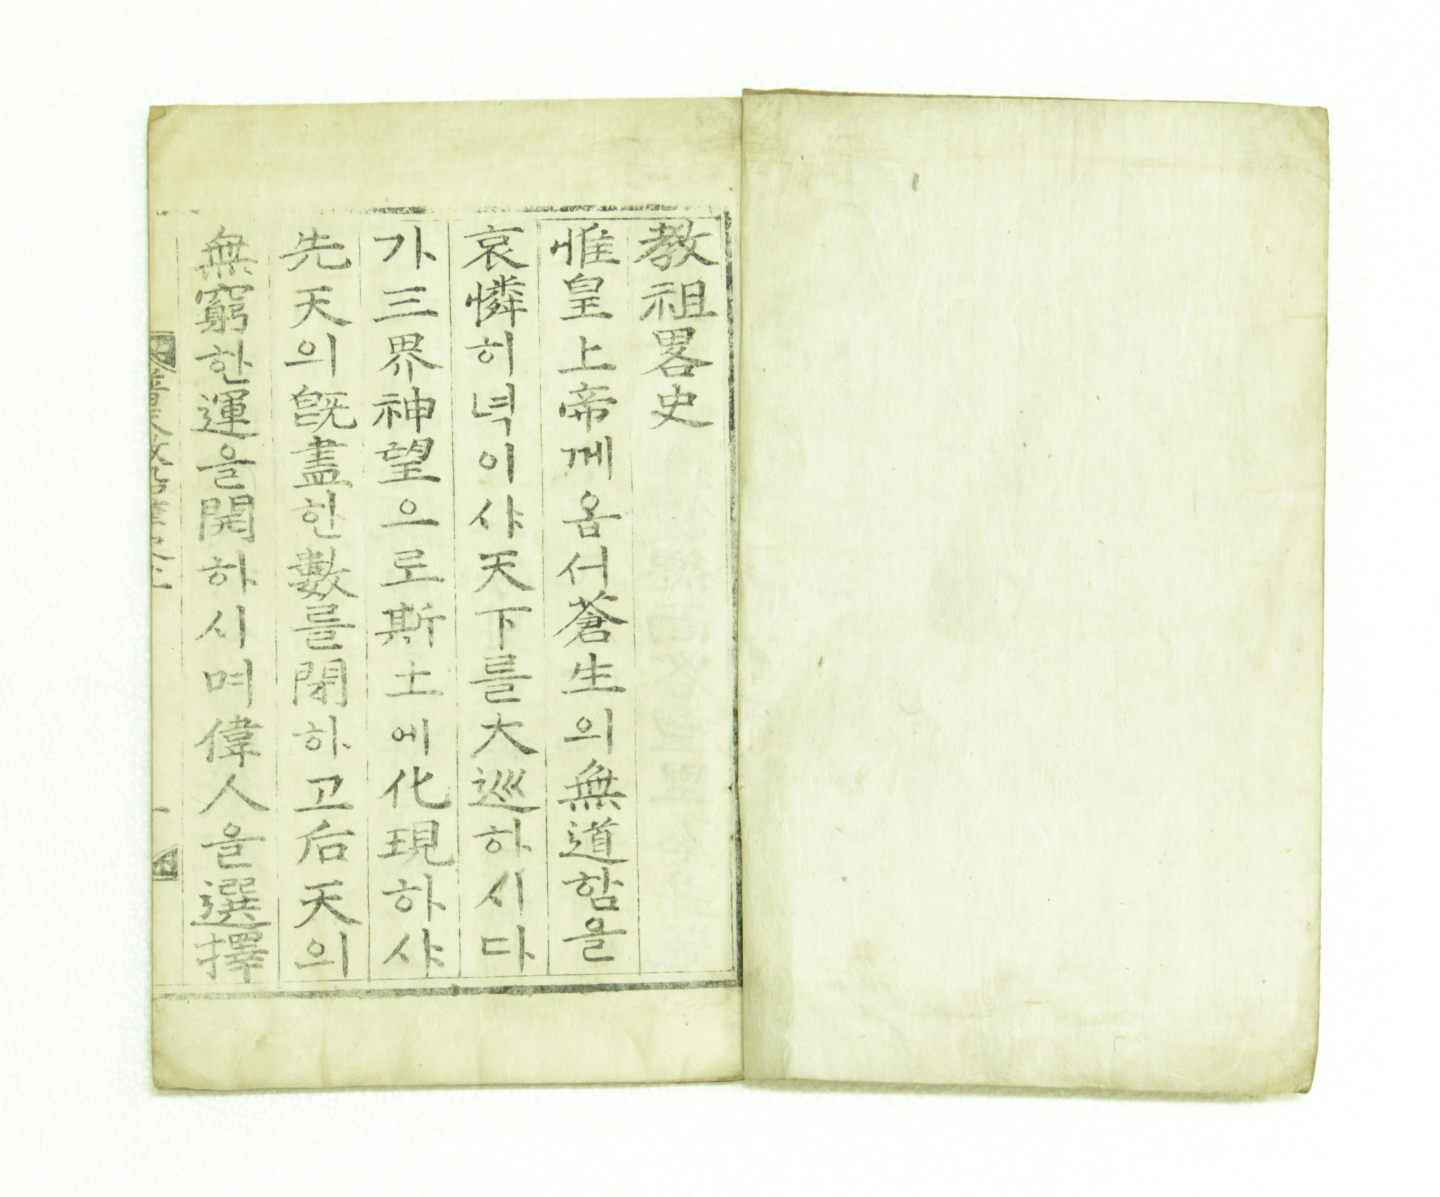 教祖畧史
惟皇上帝께옵서蒼生의無道함을
哀憐히녁이샤天下를大巡하시다
가三界神望으로斯土에化現하샤
先天의旣盡한數를閉하고后天의
無窮한運을開하시며偉人을選擇